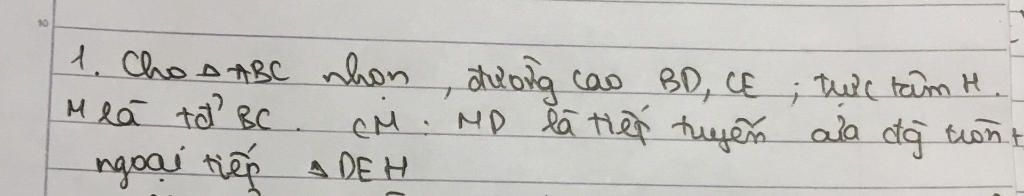 1. Cho Δ ABC nhọn, đường cao BD, CE; trực tâm H.
M là tđ' BC. CM: MD là tiếp tuyến của đg tròn
ngoại tiếp Δ DEH